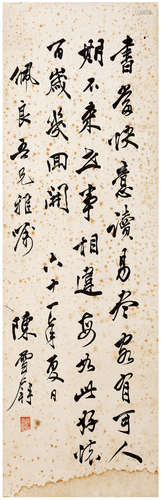 書當快意讀易盡客有可人
期不來世事相違每如此好懷
百歲幾回開 六十一年夏日
佩良吾兄雅囑 陳雪屏